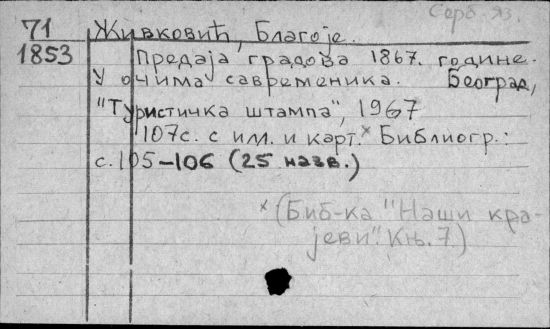 Серб. яз.
71 Живковић, Благоје.
1853 Предаја градова 1867. године.
У очима савременика. Београд,
"Туристичка штампа", 1967
107с. с ил. и карт.* Библиогр.:
с. 105-106 (25 назв.)
*(Биб-ка "Наши кра-
јеви". Књ. 7)